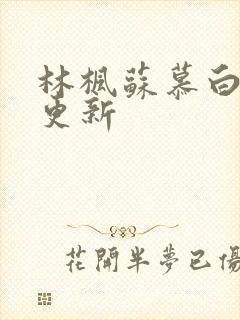 林楓蘇慕白
更新
花開半夢已傷